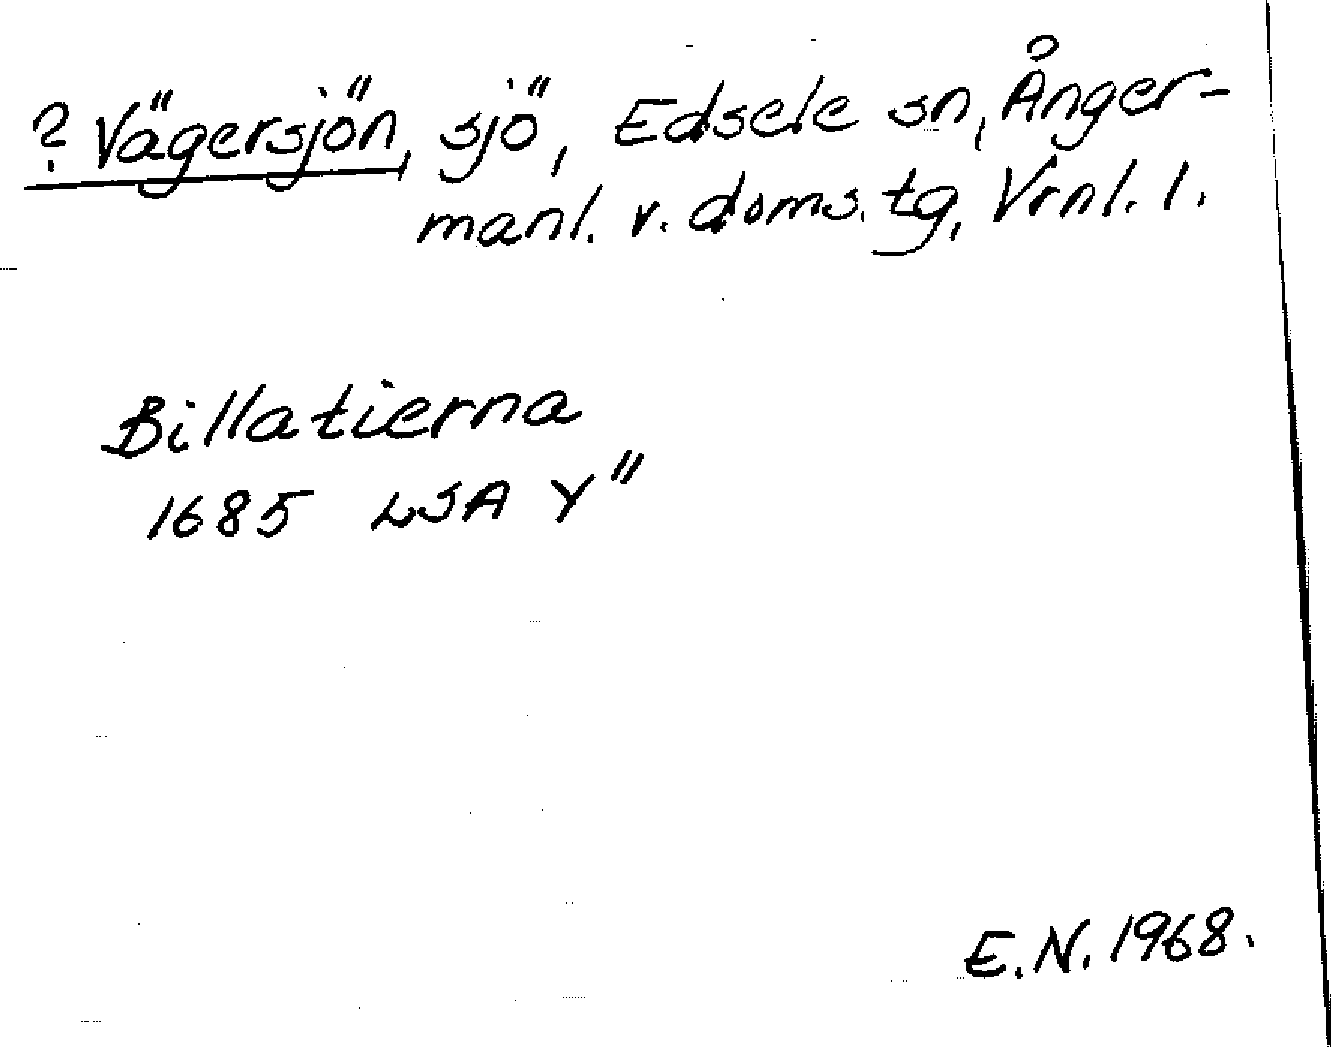 ? Vägersjön, sjö, Edsele sn, Ånger-
manl. v. doms. tg, Vrnl. l.
Billatierna
1685 LSA Y"
E.N. 1968.